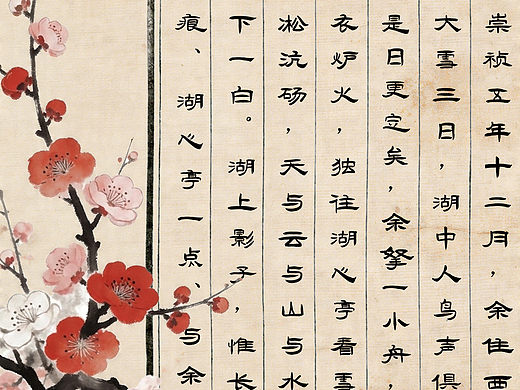 崇祯五年十二月，余住西
大雪三日，湖中人鸟声俱
是日更定矣，余拏一小舟，
衣炉火，独往湖心亭看雪
凇沆砀，天与云与山与水
下一白。湖上影子，惟长
痕、湖心亭一点、与余